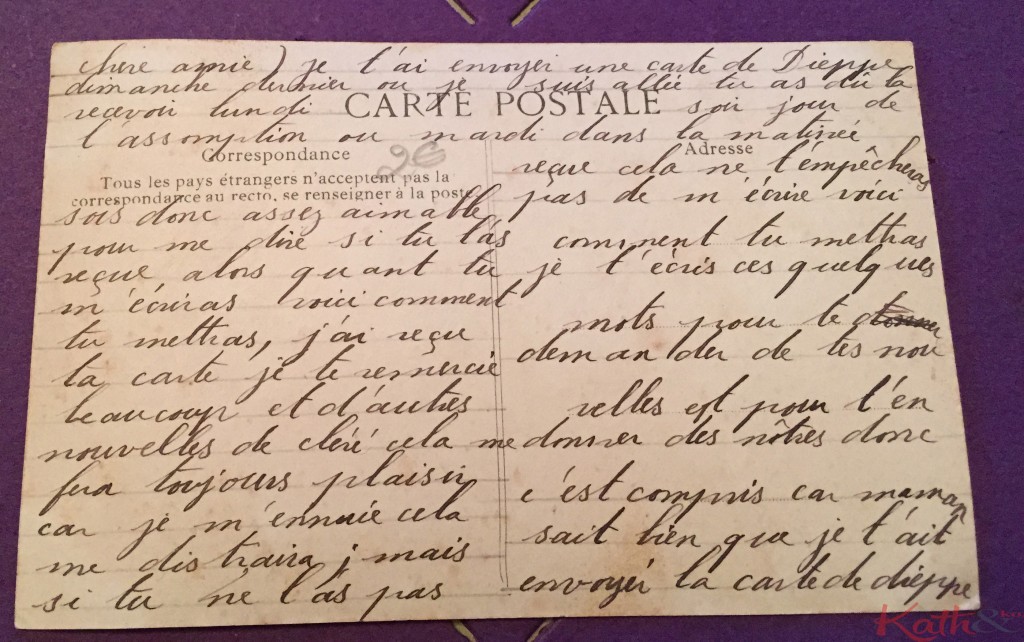 chère amie, je t'ai envoyer une carte de Dieppe
dimanche dernier ou je suis allée tu as dû la
recevoir lundi soir jour de
CARTE POSTALE
l'assomption ou mardi dans la matinée
Correspondance
2€
Tous les pays étrangers n'acceptent pas la
correspondance au recto, se renseigner à la poste
sois donc assez aimable
pour me dire si tu l'as
reçue alors quant tu
m'écriras voici comment
tu mettras, j'ai reçue
ta carte je te remercie
beaucoup et d'autres
nouvelles de cléré cela me
fera toujours plaisir
car je m'ennuie cela
me distraira, mais
si tu ne l'as pas
Adresse
reçue cela ne t'empêcheras
pas de m'écrire voici
comment tu mettras
je t'écris ces quelques
mots pour te donner
demander de tes nou
velles est pour t'en
donner des nôtres donc
c'est compris car maman
sait bien que je t'ait
envoyér la carte de dieppe
Kath&